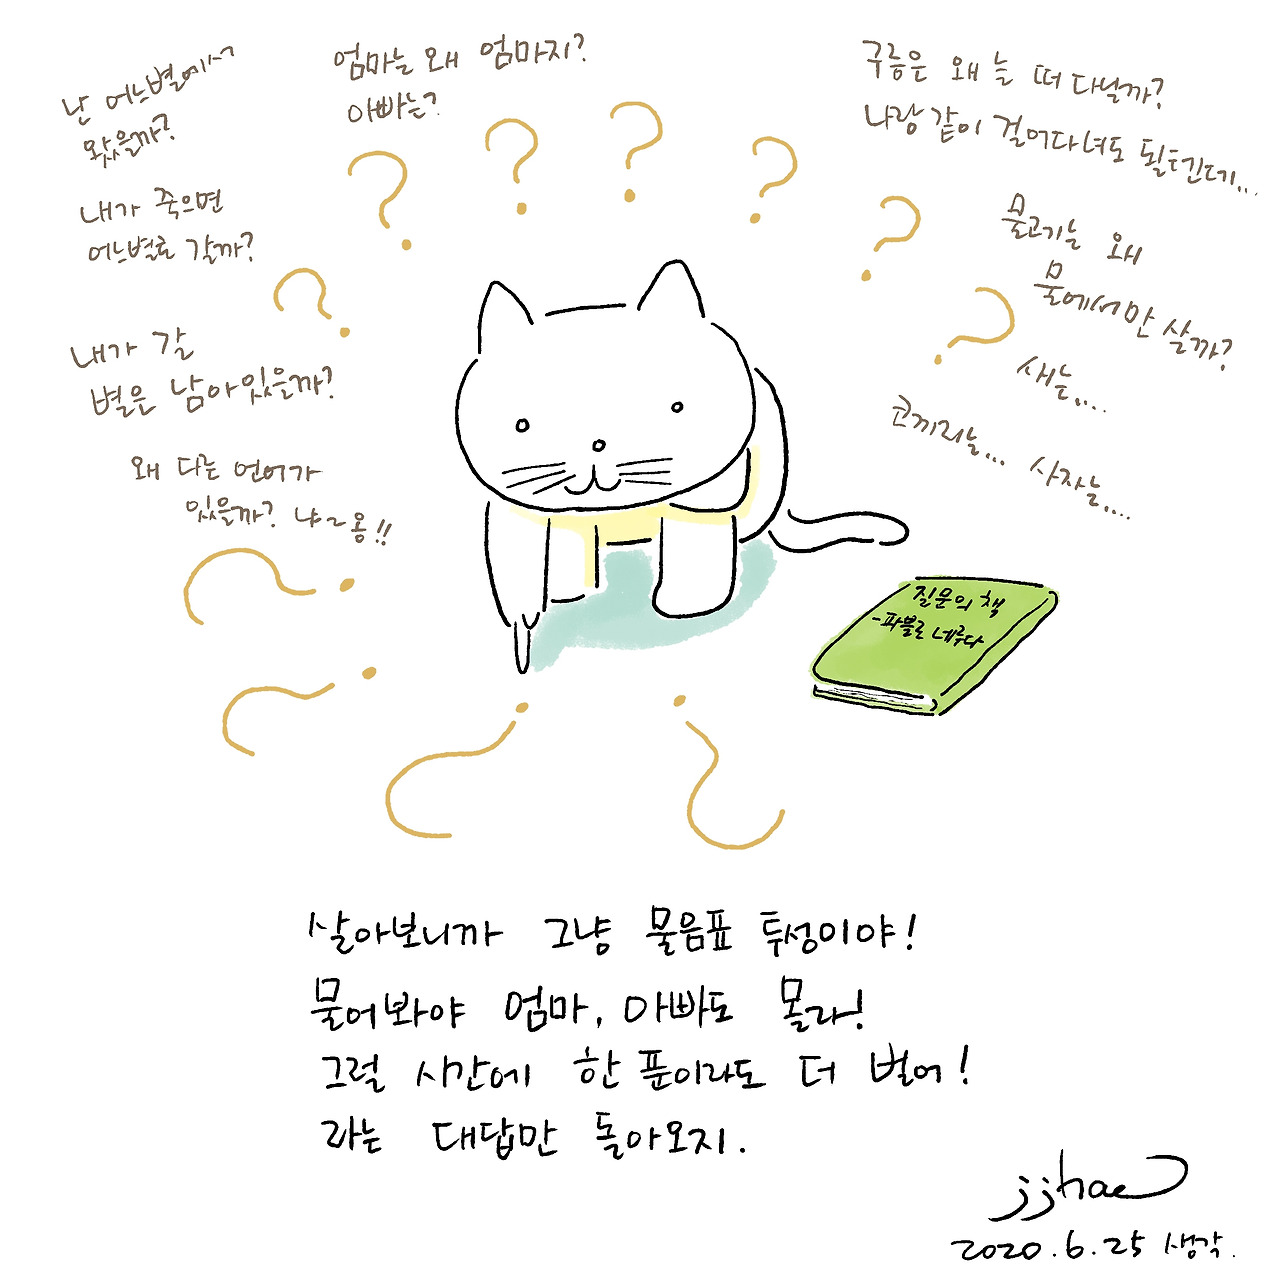 난 어느별에서
왔을까?
내가 죽으면
어느별로 갈까?
내가 갈
별은 남아있을까?
왜 다른 언어가
있을까? 냐~옹!!
엄마는 왜 엄마지?
아빠는?
구름은 왜 늘 떠 다닐까?
나랑 같이 걸어다녀도 될텐데...
물고기는 왜
물에서만 살까?
새는....
코끼리는... 사자는....
질문의 책
-파블로 네루다
살아보니까 그냥 물음표 투성이야!
물어봐야 엄마, 아빠도 몰라!
그럴 시간에 한 푼이라도 더 벌어!
라는 대답만 돌아오지.
jjhae
2020.6.25 생각.